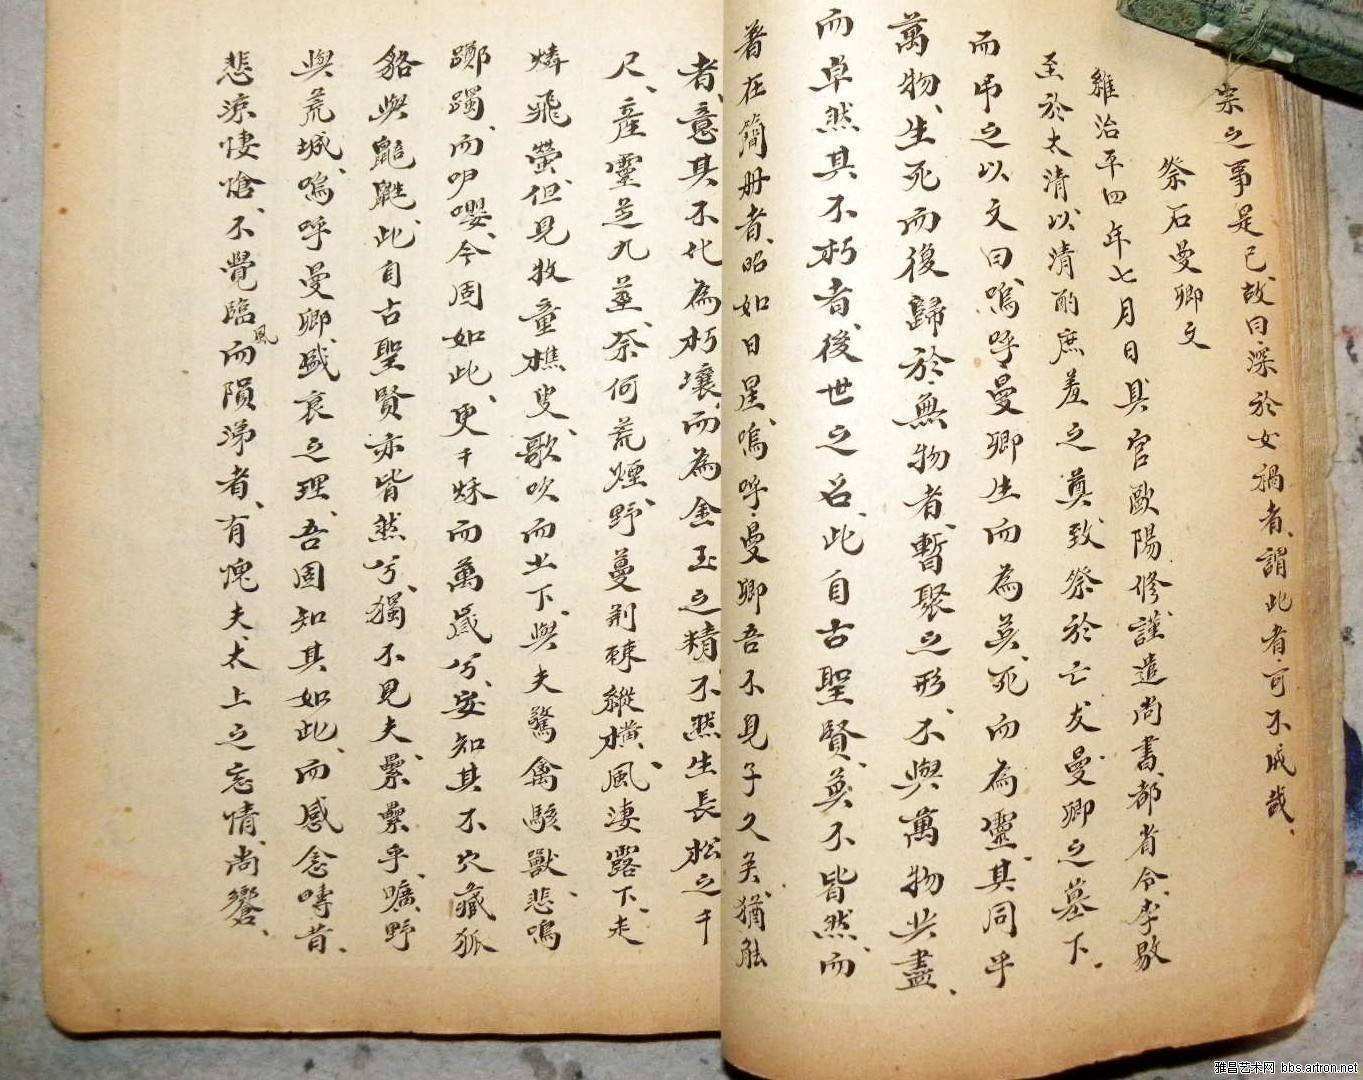 宗之事是已、故曰、深於女禍者、謂此者、可不戒哉、
祭石曼卿文
維治平四年七月日、具官歐陽修、謹遣尚書都省令李敭
至於太清、以清酌庶羞之奠、致祭於亡友曼卿之墓下、
而弔之以文曰、嗚呼曼卿、生而為英、死而為靈、其同乎
萬物、生死而後歸於無物者、暫聚之形、不與萬物共盡、
而卓然其不朽者、後世之名、此自古聖賢、莫不皆然、而
著在簡冊者、昭如日星、嗚呼、曼卿吾不見子久矣、猶能
者、意其不化為朽壤、而為金玉之精、不然生長松之千
尺、產靈芝九莖、奈何荒煙野蔓荆棘縱橫、風淒露下、走
燐飛螢、但見牧童樵叟、歌吹而上下、與夫驚禽駭獸、悲鳴
躑躅、而呼嚶、今固如此、更千秋而萬歲兮、安知其不穴藏狐
貉與鼯鼪、此自古聖賢亦皆然兮、獨不見夫纍纍乎曠野
與荒城、嗚呼曼卿、盛衰之理、吾固知其如此、而感念疇昔、
悲涼悽愴、不覺臨風而隕涕者、有愧夫太上之忘情、尚饗、
雅昌艺术网 bbs.artron.net